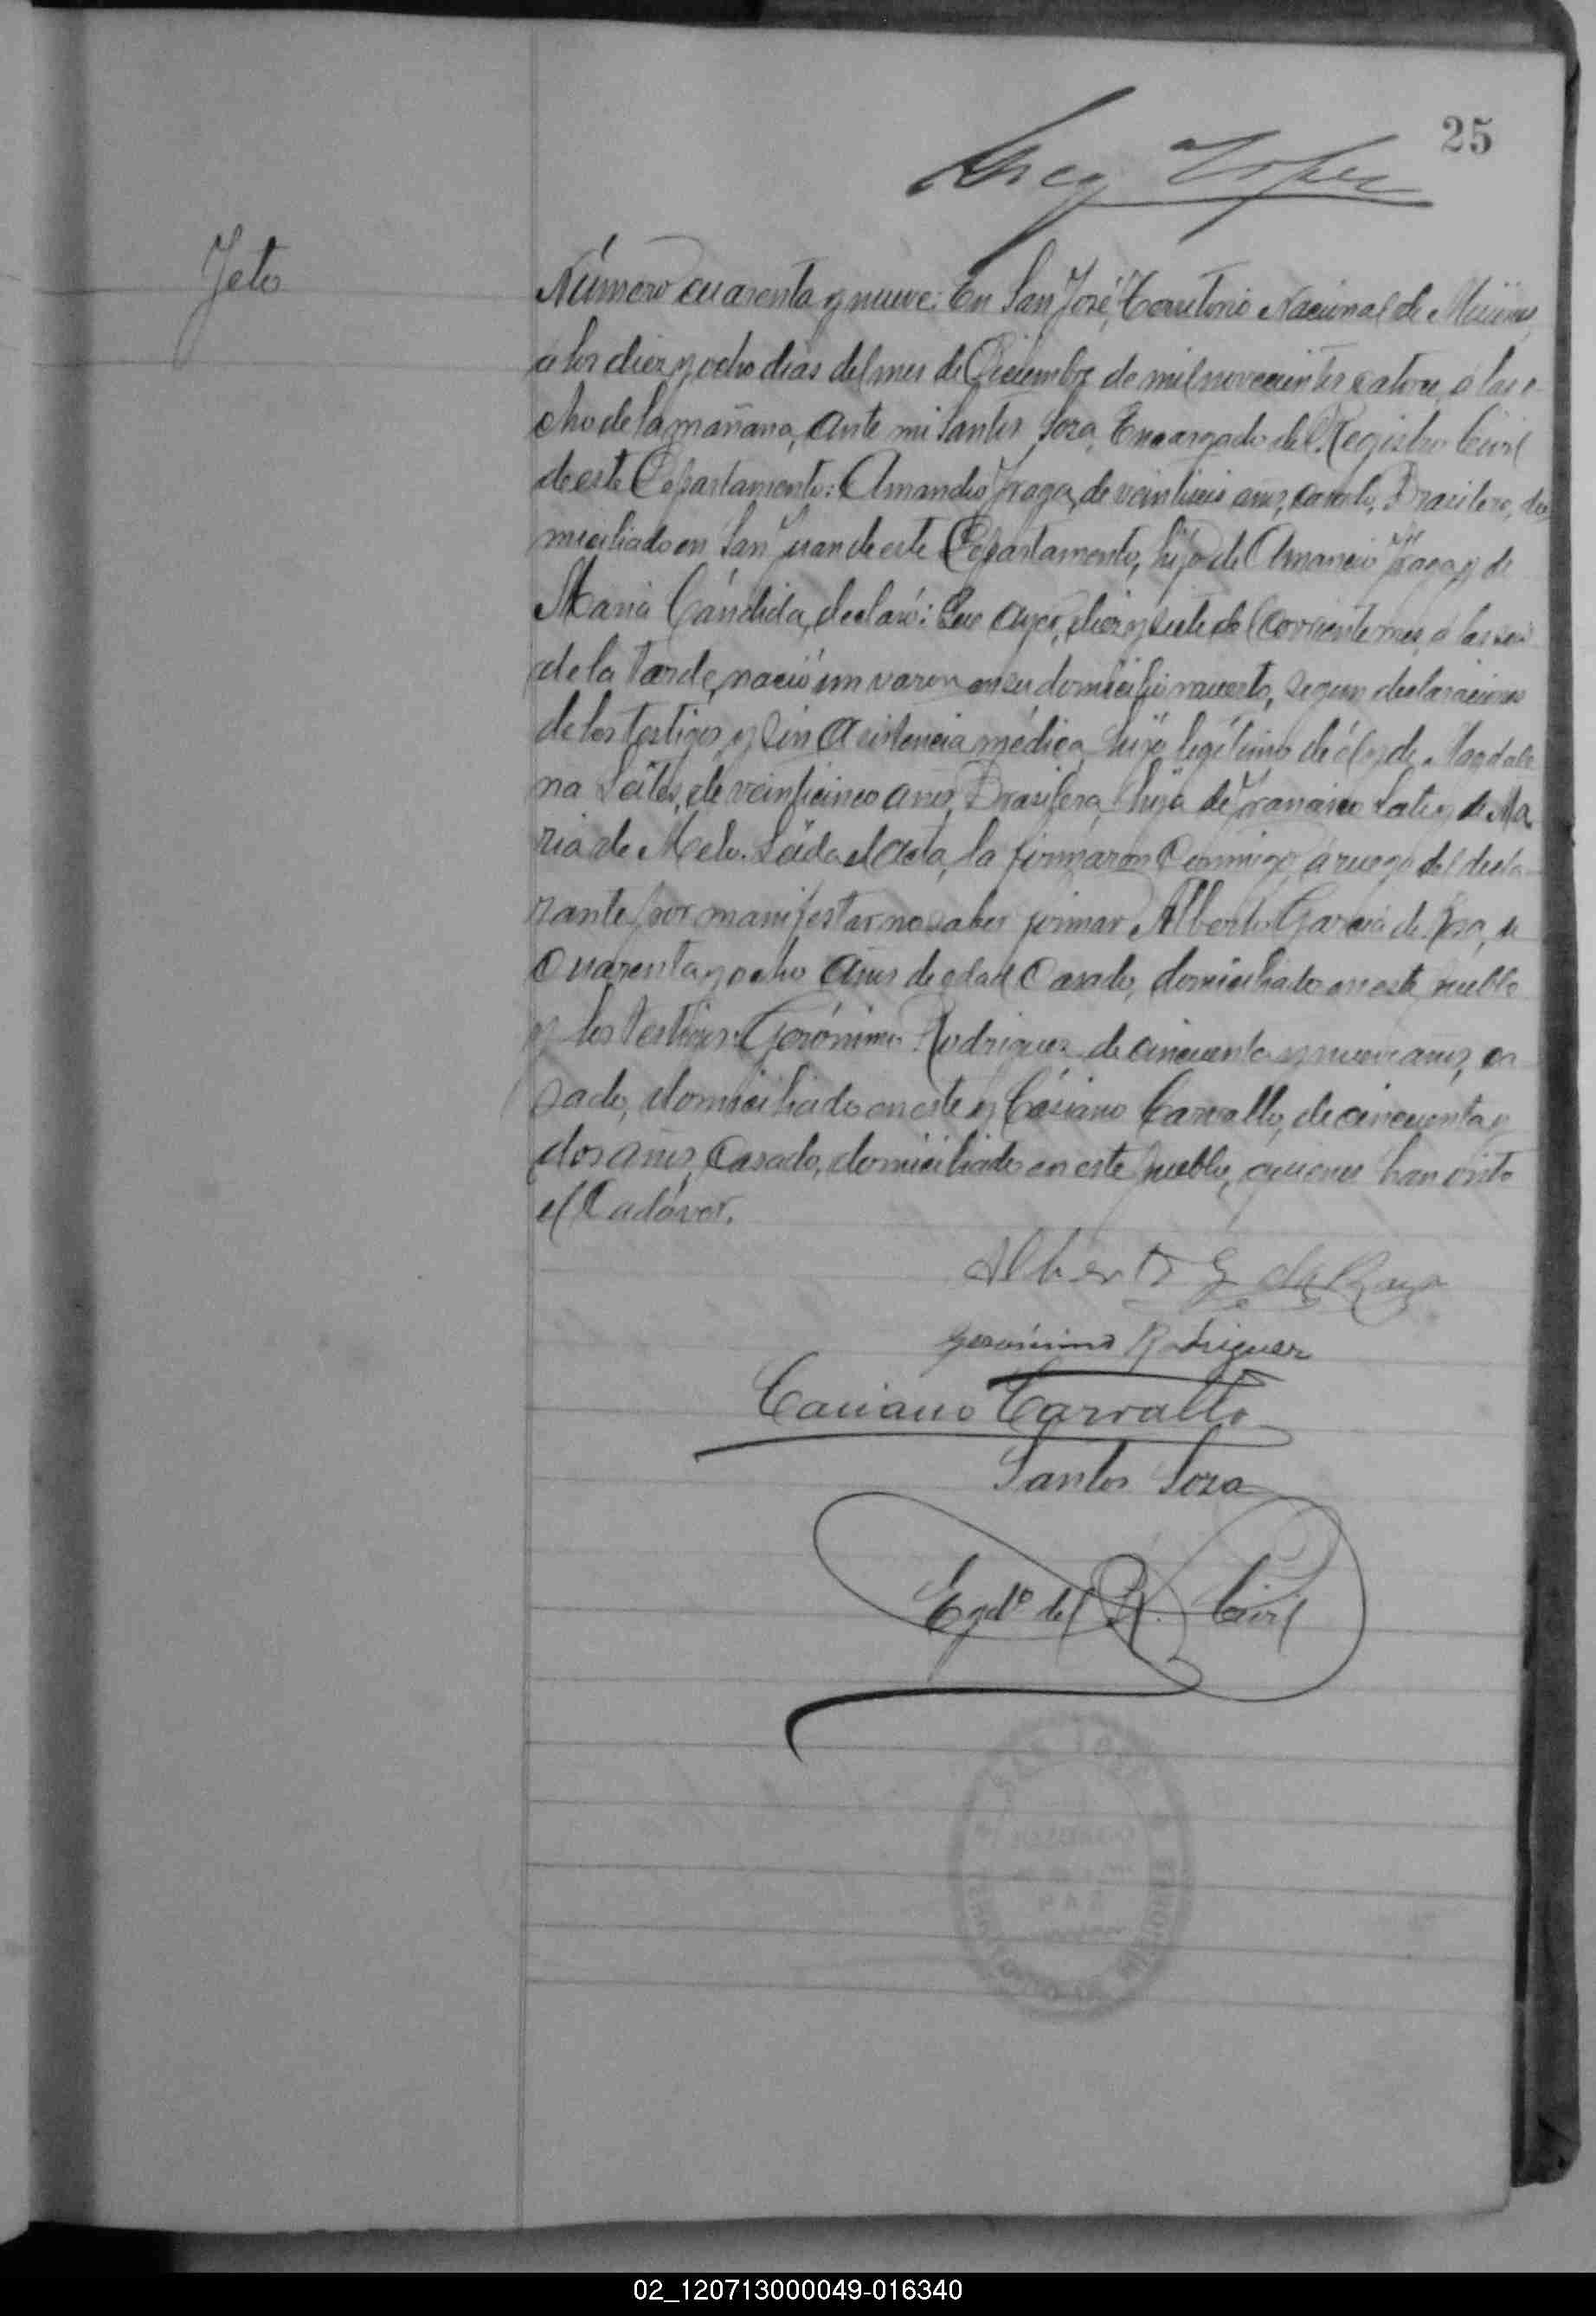 25
Lopez
Feto
Número cuarenta y nueve: En San José, Territorio Nacional de Misiones,
a los diez y ocho dias del mes de Diciembre de mil novecientos catorce, a las o-
cho de la mañana, ante mi Santos Soza, Encargado del Registro Civil
de este Departamento: Amandio Fraga, de veintiseis años, casado, Brasilero, do-
miciliado en San Juan de este Departamento, hijo de Amancio Fraga y de
Maria Cándida, declaró: Que ayer, diez y siete del corriente mes, a las seis
de la tarde, nació un varon en su domicilio, muerto, segun declaraciones
de los testigos y sin asistencia médica, hijo legítimo de él y de Magdale
na Leites, de veinticinco años, Brasilera, hija de Francisco Leites y de Ma
ria de Melo. Leida el acta, la firmaron conmigo, á ruego del decla-
rante por manifestar no saber firmar Alberto Garcia de, de
cuarenta y ocho años de edad casado, domiciliado en este pueblo
y los testigos: Gerónimo Rodriguez de cincuenta y nueve años, ca
sado, domiciliado en este y Casiano Carvallo, de cincuenta y
dos años, casado, domiciliado en este pueblo, quienes han visto
el cadáver.
Alberto G de
Gerónimo Rodriguez
Casiano Carvallo
Santos Soza
Egdº del R. Civil
02_120713000049-016340